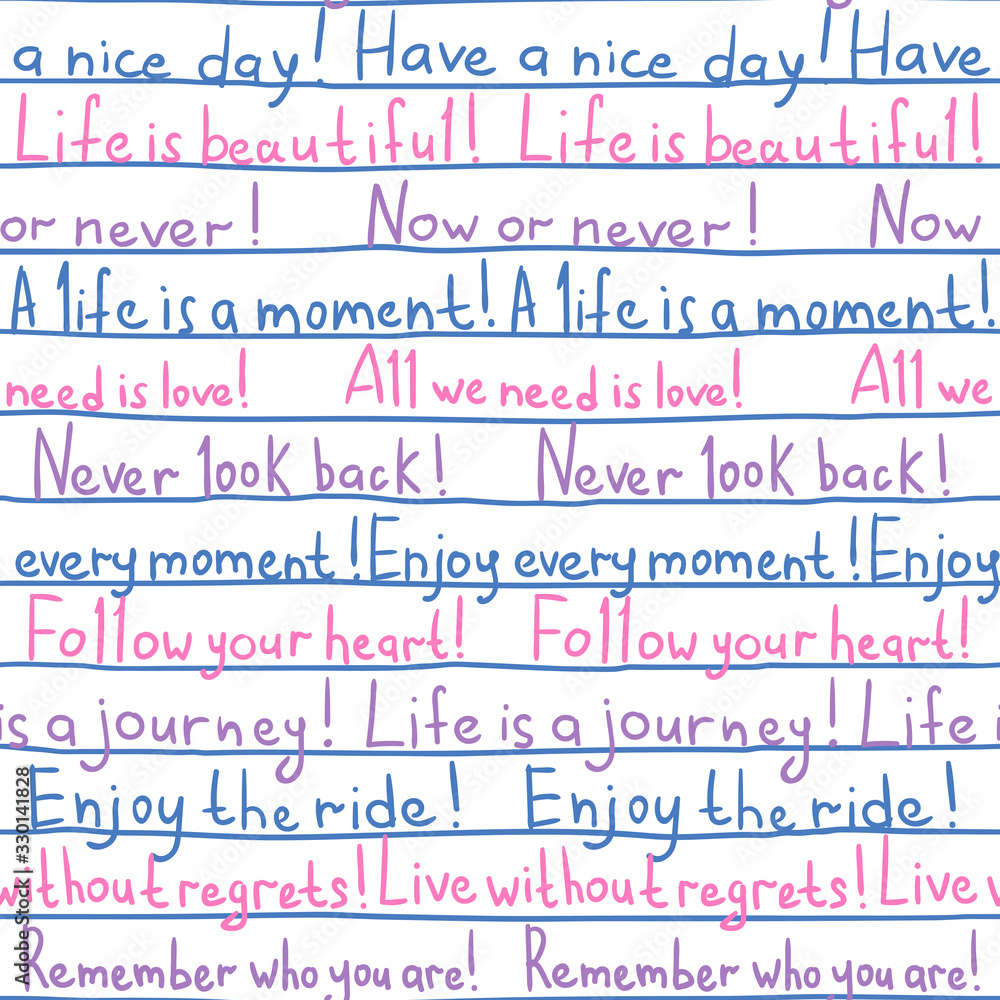 a nice day! Have a nice day! Have
Life is beautiful! Life is beautiful!
or never! Now or never! Now
A life is a moment! A life is a moment!
need is love! All we need is love! All we
Never look back! Never look back!
every moment! Enjoy every moment! Enjoy
Follow your heart! Follow your heart!
is a journey! Life is a journey! Life i
Enjoy the ride! Enjoy the ride!
without regrets! Live without regrets! Live w
Remember who you are! Remember who you are!
Adobe Stock | #330141828